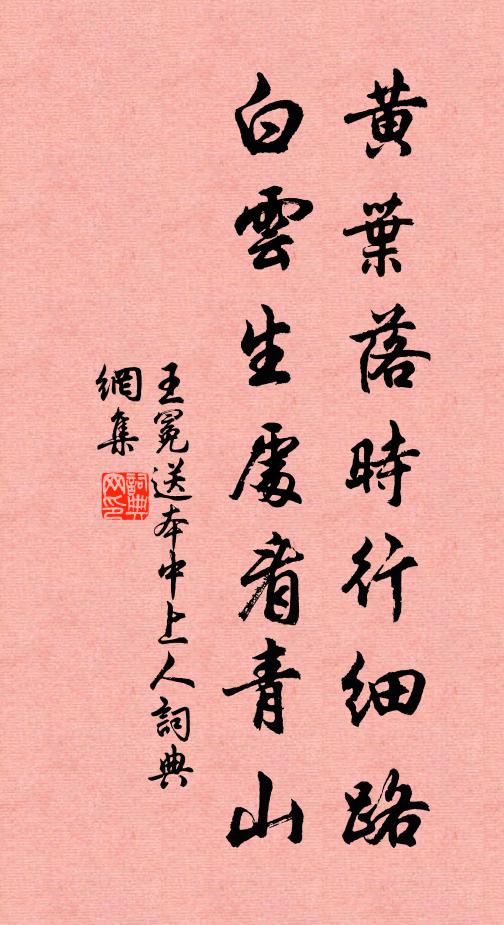 黃葉落時行細路
白雲生處看青山
王冕送本中上人詞典
網集
詞典
网印